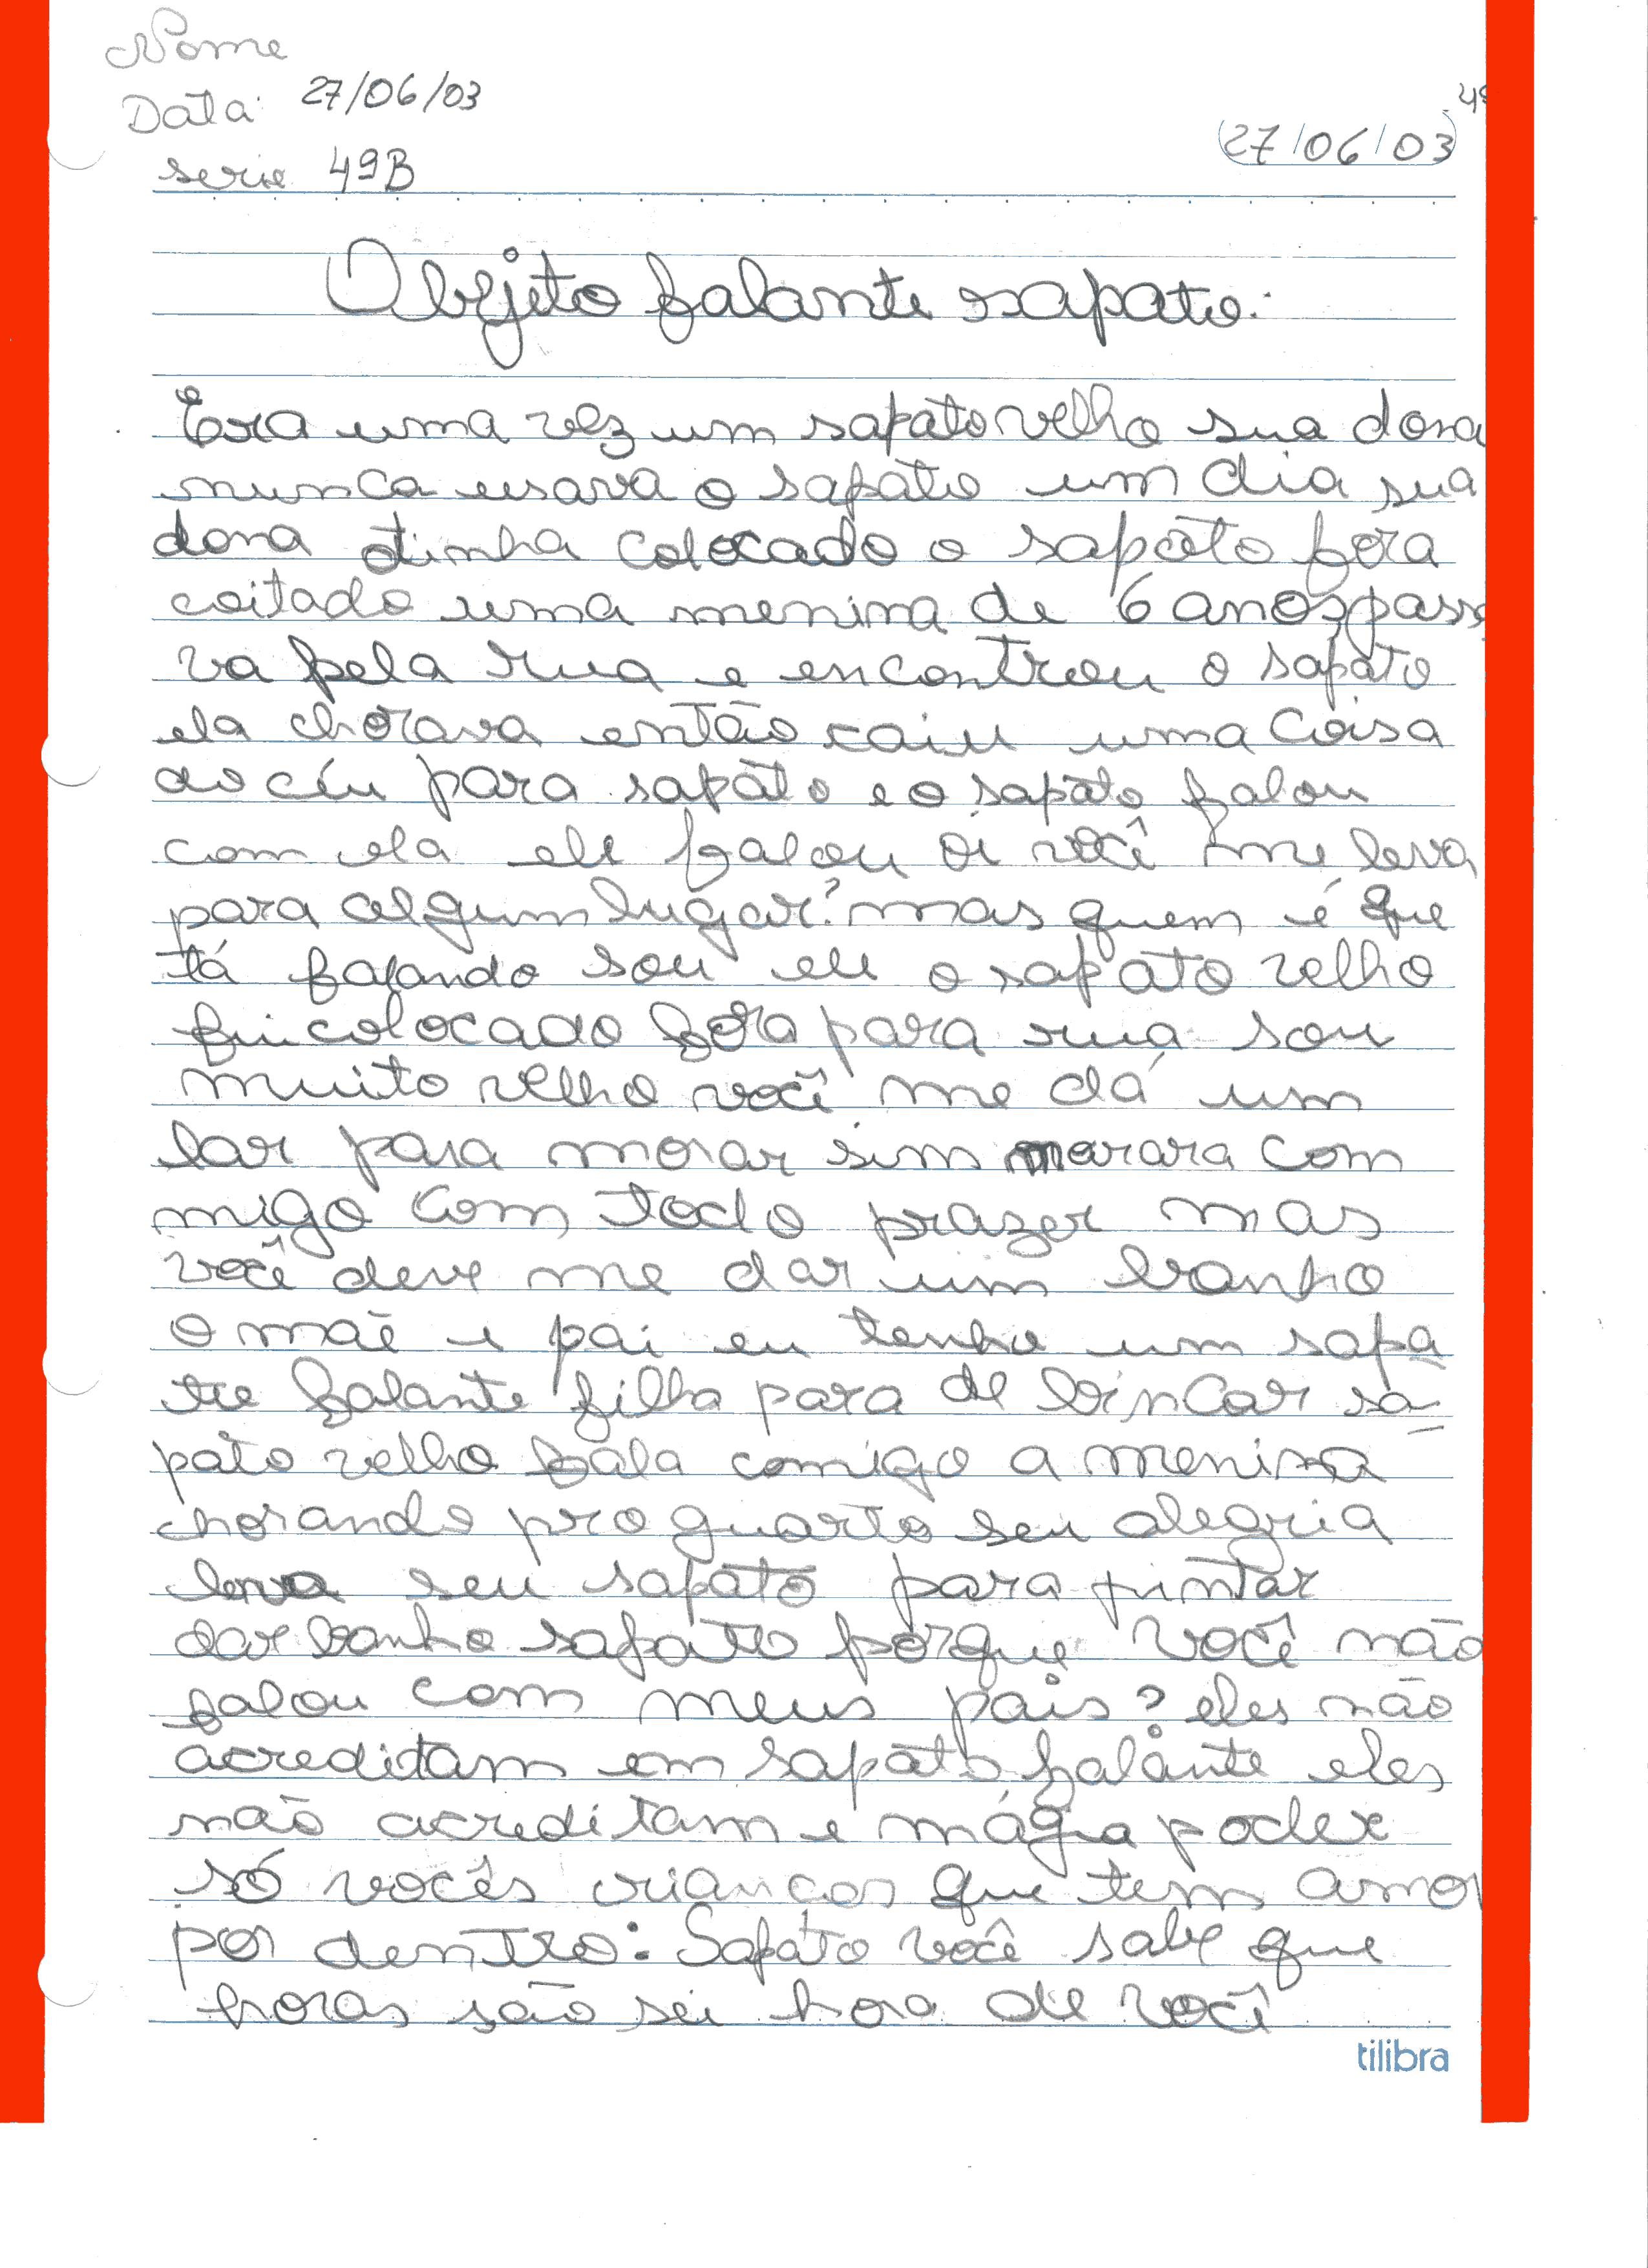 Nome
Data: 27/06/03
(27/06/03)
serie 49B
Objeto falante sapato.
Era uma vez um sapato velho sua dona
nunca usava o sapato um dia sua
dona tinha colocado o sapato fora
coitado uma menina de 6 anos passa
va pela rua e encontrou o sapato
ela chorava então caiu uma coisa
do céu para sapato e o sapato falou
com ela ele falou oi você me leva
para algum lugar? mas quem é que
tá falando sou eu o sapato velho
fui colocado fora para rua sou
muito velho você me dá um
lar para morar sim morara com
migo com todo prazer mas
você deve me dar um banho
o mãe e pai eu tenho um sapa
to falante filha para de brincar sa-
pato velho fala comigo a menina
chorando pro quarto seu alegria
leva seu sapato para pintar
dar banho sapato porque você não
falou com meus pais? eles não
acreditam em sapato falante eles
não acreditam e mágia poder
só vocês crianças que tem amor
por dentro: Sapato você sabe que
horas são sei hora de você
tilibra